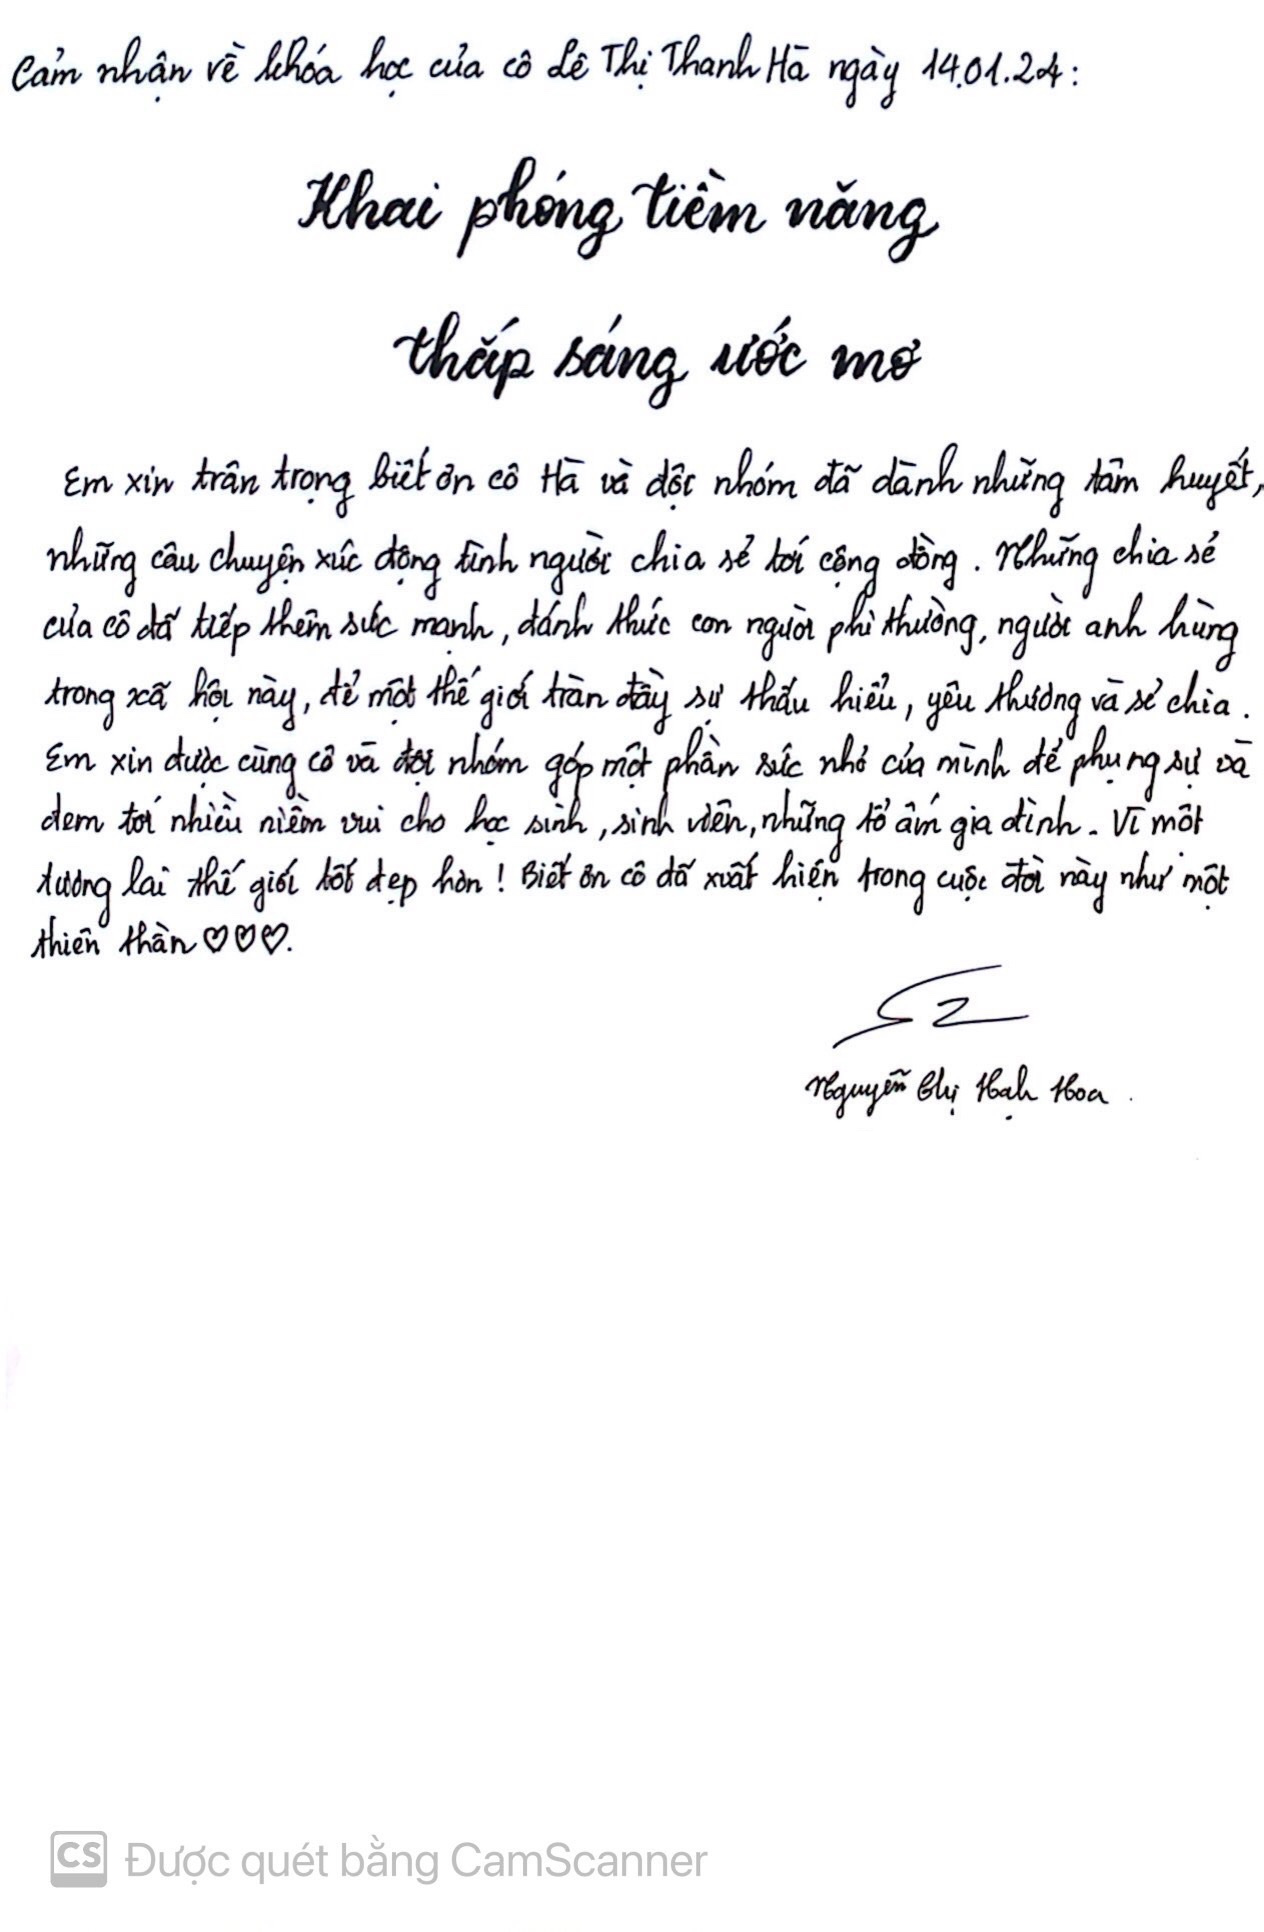 Cảm nhận về khóa học của cô Lê Thị Thanh Hà ngày 14.01.24:
Khai phóng tiềm năng
thắp sáng ước mơ
Em xin trân trọng biết ơn cô Hà và độc nhóm đã dành những tâm huyết,
những câu chuyện xúc động tình người chia sẻ tới cộng đồng. Những chia sẻ
của cô đã tiếp thêm sức mạnh, đánh thức con người phi thường, người anh hùng
trong xã hội này, để một thế giới tràn đầy sự thấu hiểu, yêu thương và sẻ chia.
Em xin được cùng cô và đội nhóm góp một phần sức nhỏ của mình để phụng sự và
đem tới nhiều niềm vui cho học sinh, sinh viên, những tổ ấm gia đình. Vì một
tương lai thế giới tốt đẹp hơn! Biết ơn cô đã xuất hiện trong cuộc đời này như một
thiên thần ♡♡♡.
Nguyễn Thị Hạh Hoa.
CS Được quét bằng CamScanner